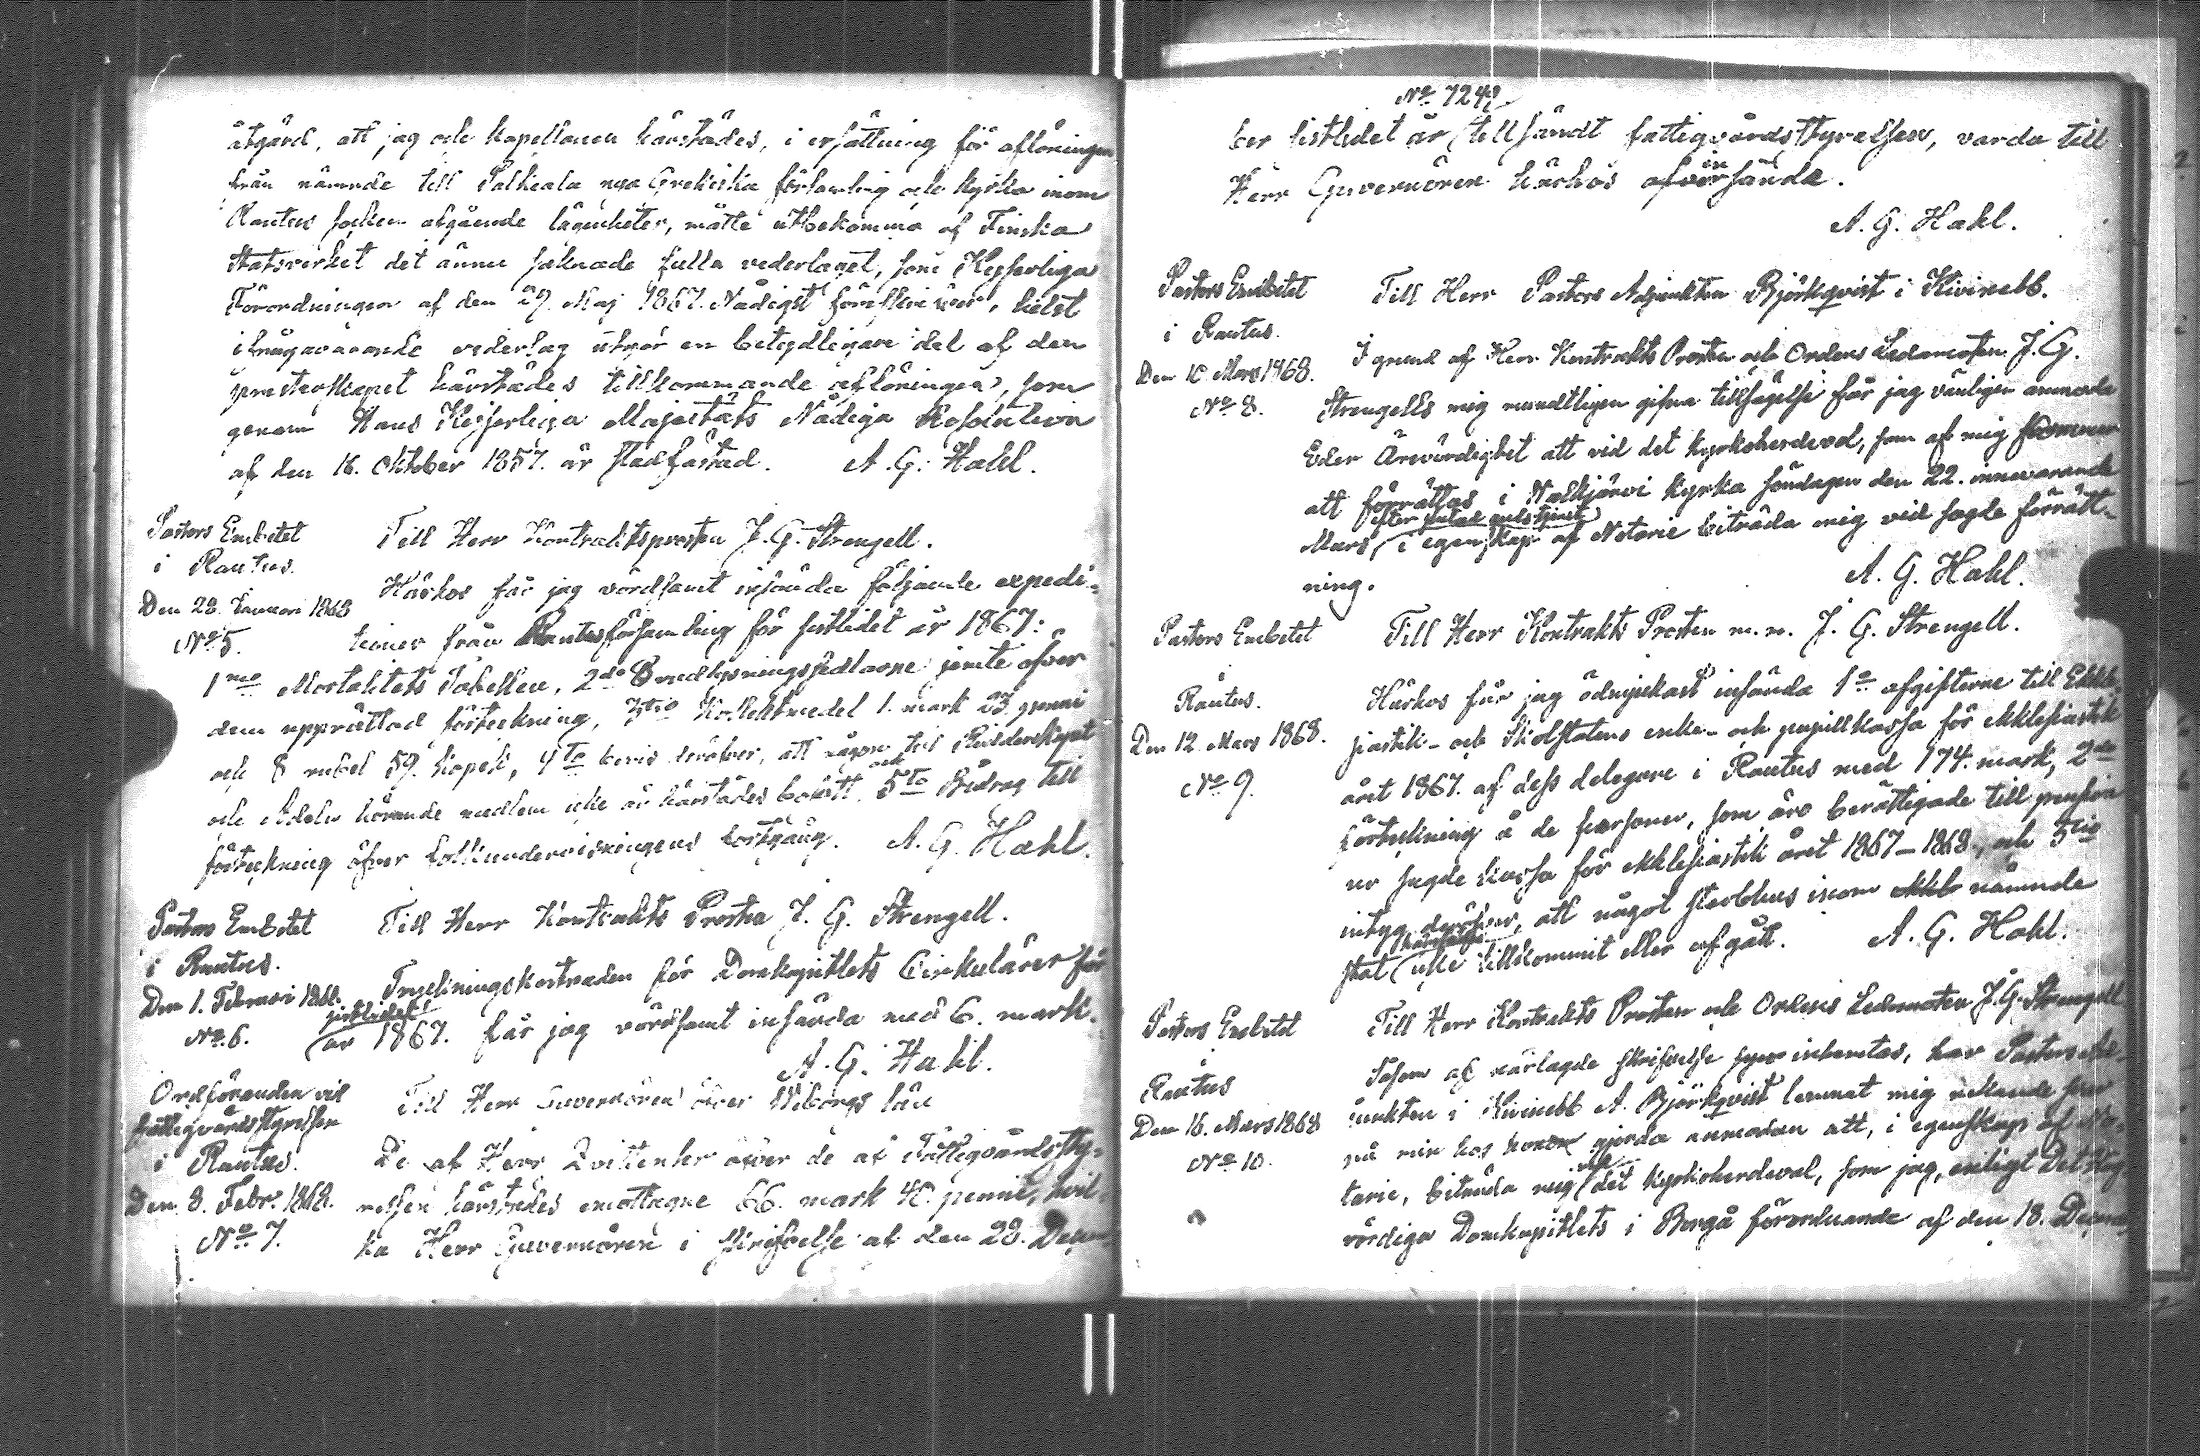 åtgärd, att jag och kapellanen härstädes, i ersättning för aflöningen
från nämnde till Palkeala nya Grekiska församling och kyrka inom
Rautus socken afgående lägenheter, måtte utbekomma af Finska
Statsverket det ännu saknade fulla vederlaget, som Kejserliga
Förordningen af den 29. Maj 1867. Nådigst föreskrifver, helst
ifrågavarande vederlag utgör en betydligare del af den
presterskapet härstädes tillkommande aflöningen, som
genom Hans Kejserliga Majestäts Nådiga Resolution
af den 16. Oktober 1857. är stadfästad. A. G. Hahl.
Pastors Embetet
i Rautus.
Den 28. Januari 1868
No 5.
Till Herr Kontraktsprosten J. G. Strengell.
Härhos får jag vördsamt insända följande expedi-
tioner från Rautus församling för sistledet år 1867:
1mo Mortalitets Tabellen, 2do lysningssedlarne jemte öfver
dem upprättad förteckning, 3tio Kollektmedel 1. mark 23 penni
och 8 rubel 59. kopek, 4to bevis deröfver, att någon till Ridderskapet
och Adeln hörande medlem icke är härstädes bosatt, och 5to Bidrag till
förteckning öfver folkundervisningens fortgång. A. G. Hahl.
Pastors Embetet
i Rautus.
Den 1. Februari 1868.
No 6.
Till Herr Kontrakts Prosten J. G. Strengell.
Tryckningskostnaden för Domkapitlets Cirkulärer för
sistledet
år 1867. får jag vördsamt insända med 6. mark.
A. G. Hahl.
Ordföranden vid
fattigvårdsstyrelsen
i Rautus.
Den 8. Febr. 1868.
No 7.
Till Herr Guvernören öfver Wiborgs län
De af Herr Qvittenser öfver de af Fattigvårdssty-
relsen härstädes emottagne 66. mark 40. penni, hvil-
ka Herr Guvernören i skrifvelse af den 28. Decem
No 7249
ber sistledet år tillsändt fattigvårdsstyrelsen, varda till
Herr Guvernören härhos insända.
A. G. Hahl.
Pastors Embetet
i Rautus.
Den 10 Mars 1868.
No 8.
Till Herr Pastors Adjunkten Björkqvist i Kivinebb.
I grund af Herr Kontrakts Prosten och Ordens Ledamoten J. G.
Strengells mig mundtligen gifna tillsägelse får jag vänligen anmoda
Eder Ärevördighet att vid det kyrkoherdeval, som af mig kommer
att förrättas i Walkjärvi kyrka söndagen den 22. innevarande
efter slutad gudstjenst
Mars i egenskap af Notarie biträda mig vid sagde förrätt-
ning.
A. G. Hahl.
Pastors Embetet
Rautus.
Den 12. Mars 1868.
No 9.
Till Herr Kontrakts Prosten m. m. J. G. Strengell.
Härhos får jag ödmjukast insända 1o afgifterne till Ekkle-
siastik- och Skolstatens enke- och pupillkassa för ekklesiastik
året 1867. af dess delegare i Rautus med 174. mark, 2do
förteckning å de personer, som äro berättigade till pensio-
ner sagde kassa för ekklesiastik året 1867–1868., och 3tio
intyg deröfver, att något sterbhus inom nämnde
stat härstädes icke tillkommit eller afgått. A. G. Hahl.
Pastors Embetet
i
Rautus
Den 16. Mars 1868
No 10.
Till Herr Kontrakts Prosten och Ordens Ledamoten J. G. Strengell
Såsom af närlagde skrifvelse synes inhemtas, har Pastors Ad-
junkten i Kivinebb A. Björkqvist lemnat mig nekande svar
på min hos honom gjorda anmodan att, i egenskap af No-
tarie, biträda mig vid det kyrkoherdeval, som jag, enligt Det Hög-
vördiga Domkapitlets i Borgå förordnande af den 18. Decem